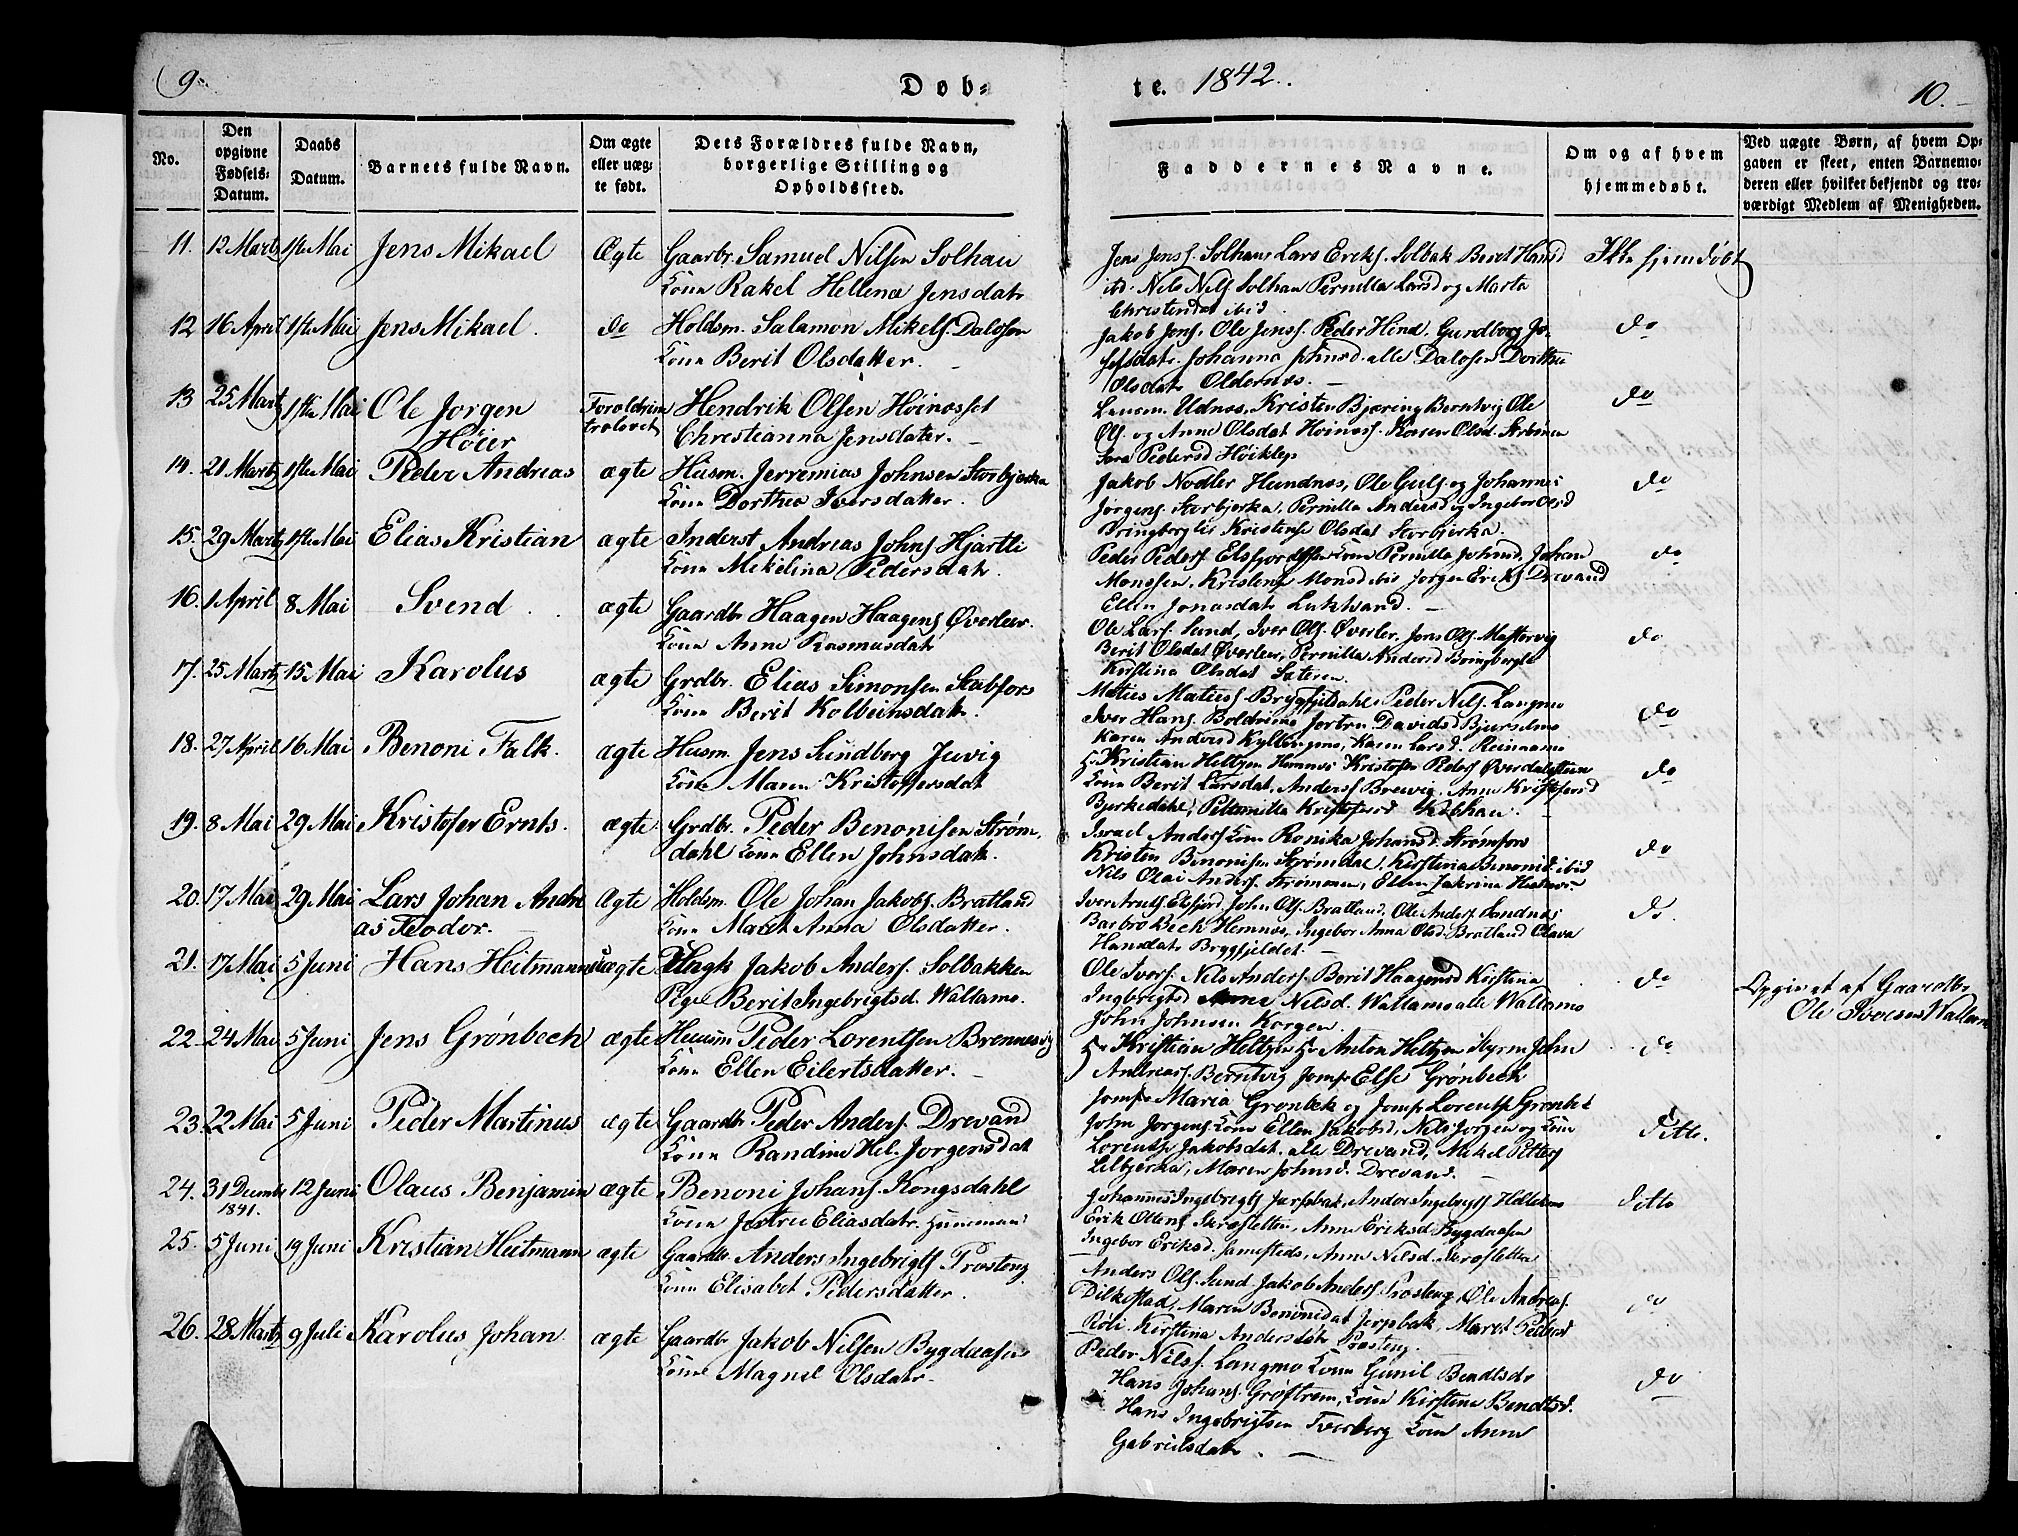 9.
Døb-
te. 1842.
10.
No.
Den
opgivne
Fødsels-
Datum.
Daabs
Datum.
Barnets fulde Navn.
Om ægte
eller uæg-
te født.
Dets Forældres fulde Navn,
borgerlige Stilling og
Opholdssted.
Faddernes Navne.
Om og af hvem
hjemmedøbt.
Ved uægte Børn, af hvem Op-
gaven er skeet, enten Barnemo-
deren eller hvilket bekjendt og tro-
værdigt Medlem af Menigheden.
11. 12 Marts 1ste Mai Jens Mikael Ægte Gaarbr. Samuel Nilsen Solhau
Kone Rakel Hellena Jensdatr
Jens Jenss. Solhau Lars Ericks. Solbak Berit Hansd
ibd. Nils Nilss. Solhau Pernilla Larsd og Marta
Christendat ibid.
Ikke hjemdøbt
12 16 April 1ste Mai Jens Mikael. do Holdsm. Salamon Mikels. Dalosen
Kone Berit Olsdatter.
Jakob Jons. Ole Jenss. Peder Hend. Gundborg Jo-
sefsdatr. Johanna Johnsd. alle Dalosen Dorthea
Olsdatr Oldernes.
do
13 25 Marts 1ste Mai Ole Jorgen
Høier
Foraldrene
trolovet
Hendrik Olsen Høinesset
Chrestianna Jensdater.
Lensm. Udnæs, Kristen Bjering Berntvig Ole
Ols. og Anne Olsdat Hoiness. Karen Olsd.
Sara Pedersd Høiklep
do
14. 21 Marts 1ste Mai Peder Andreas ægte Husm. Jerremias Johnsen Storbjerka
Kone Dorthea Iversdatter.
Jakob Nodler Hundnes, Ole Guls. og Johannes
Jørgens. Storbjerka, Pernilla Andersd og Ingebor Olsd
Bringberglie Kristense Olsdat Storbjerka.
do
15. 29 Marts 1ste Mai Elias Kristian ægte Inderst Andreas Johns. Hjartli
Kone Mekelina Pedersdatr.
Peder Peders. Elsfjord Kone Pernilla Johnsd. Johan
Monssen, Kristense Monsd ibid Jorgen Eriks. Drevand
Ellen Jonasdatr Luktvand.
do
16. 1 April 8 Mai Svend. ægte Gaardbr Haagen Haagens. Øverleir.
Kone Anne Rasmusdatr
Ole Lars. Sund, Iver Ols. Øverler, Jens Ols. Mastervig
Berit Olsdat Øverleir, Pernilla Andersd Bringbergli
Kirstina Olsdat Sateren.
do
17. 25 Marts 15 Mai Karolus ægte Grdbr. Elias Simonsen Stabfors
Kone Berit Kolbeinsdatr.
Maties Maties. Bryggfjeldahl, Peder Nils. Langmo
Iver Hans. Davidsd
Karen Andersd Kyllingmo, Karen Larsd. Reinmamo
do
18. 27 April 16 Mai Benoni Falk. ægte Husm. Jens Sundberg Juvig
Kone Maren Kristoffersdat
Hr Kristian Heltzen Hemnes Kristofer Peders Øverdalsteen
Kone Berit Larsdat, Anders Brevig. Anne Kristofersd
Bjerkedahl, Petronilla Kristofersd Kobhau.
do
19. 8 Mai 29 Mai Kristofer Ernts. ægte Grdbr. Peder Benonisen Strøm-
dahl Kone Ellen Johnsdatr.
Israel Anders. Kone Ronika Johansd. Strømfors
Kristen Benonisen Strømdal, Kirstina Benonisd. ibid
Nils Olai Anders. Strømmen, Ellen Jakrina
do
20. 17 Mai 29 Mai Lars Johan Andre
as Teodor.
Ægte Holdsm. Ole Johan Jakobs. Bratland
Kone Maret Anna Olsdatter.
Iver Arnts. Elsfjord, John Ols. Bratland, Ole Anders. Sandnæs
Barbro Bech Hemnes, Ingebor Anna Olsd. Bratland Olava
Hansdatr Bryggfjeldet
do.
21. 17 Mai 5 Juni Hans Heitmann Uægte Ungk Jakob Anders. Solbakken
Pige Berit Ingebrigtsd. Wallamo.
Ole Ivers. Nils Anders. Berit Haagensd Kirstina
Ingbrigtsd Nilsd. Wallamo alle Wallamo
John Johnsen Korgen.
do
Opgivet af Gaardbr
Ole Iversen Wallam
22. 24 Mai 5 Juni Jens Grønbech ægte Huusm Peder Lorentsen Brennesvig
Kone Ellen Eilertsdatter.
Hr Kristian Heltzen Hr Anton Heltzen Styrm John
Andreass. Berntvig Jomfr Else Grønbeck
Jomfr Maria Grønbek og Jomfr Lorentse Grønbek
do
23. 22 Mai 5 Juni Peder Martinus ægte Gaardbr Peder Anders. Drevand
Kone Randine Hel. Jorgensdat
John Jorgens Kone Ellen Jakobsd, Nils Jorgen og Kone
Lorentse Jakobsdat. alle Drevand, Mikel Petters
Lilbjerka, Maren Johnsd. Drevand.
Ditto.
24. 31 Decembr 12 Juni Olaus Benjamin ægte Benoni Johans. Kongsdahl
1841.
Kone Jertru Eliasdatr.
Johannes Ingebrigts Jerpbak, Anders Ingebrigts Hellemo
Erik Ottens. Skresletten, Anne Eriksd. Bygdaasen
Ingebor Eriksd. Jamestedr, Anne Nilsd. Skresletten
Ditto
25. 5 Juni 19 Juni Kristian Heitmann ægte Gaardbr Anders Ingebrigts Prosteng
Kone Elisabet Pedersdatter.
Anders Ols. Sund. Jakob Anders Prosteng, Ole Andreas.
Dilkestad, Maren Benonidat Jerpbak, Maret Pedersd
Røli. Kirstina Andersdatr Prosteng.
do
26. 28 Marts 9 Juli Karolus Johan ægte Gaardbr Jakob Nilsen Bygdaasen
Kone Magnel Olsdatr.
Peder Nilss. Langmo Kone Gunil Bendtsdr
Hans Johans. Grøftrem, Kone Kirstina Bendtsd.
Hans Ingebrigtsen Tverberg Kone Anne
Gabrielsdatr.
do